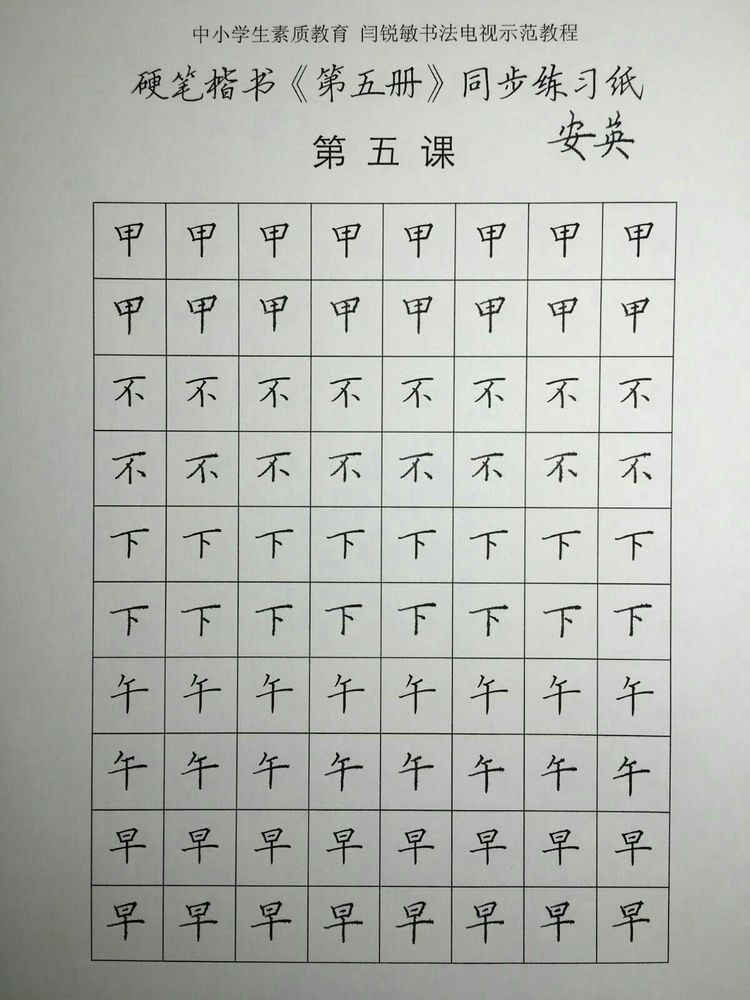 中小学生素质教育 闫锐敏书法电视示范教程
硬笔楷书《第五册》同步练习纸
第五课
安英
甲 甲 甲 甲 甲 甲 甲 甲
甲 甲 甲 甲 甲 甲 甲 甲
不 不 不 不 不 不 不 不
不 不 不 不 不 不 不 不
下 下 下 下 下 下 下 下
下 下 下 下 下 下 下 下
午 午 午 午 午 午 午 午
午 午 午 午 午 午 午 午
早 早 早 早 早 早 早 早
早 早 早 早 早 早 早 早